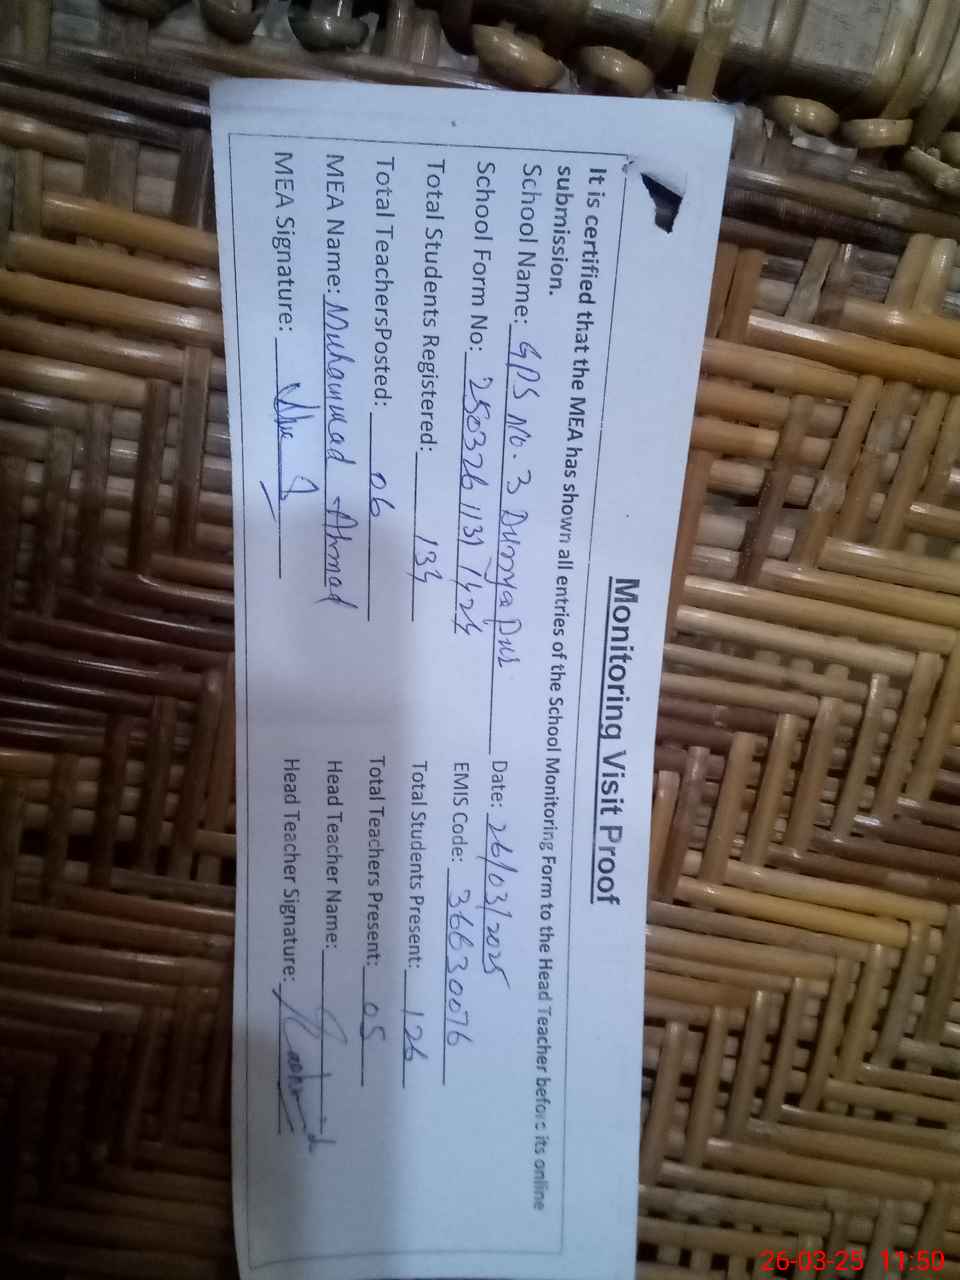 Monitoring Visit Proof
It is certified that the MEA has shown all entries of the School Monitoring Form to the Head Teacher before its online
submission.
School Name: GPS No. 3 Dunya Pur Date: 26/03/2025
School Form No: 250326 1131 1424 EMIS Code: 36630076
Total Students Registered: 134 Total Students Present: 126
Total TeachersPosted: 06 Total Teachers Present: 05
MEA Name: Muhammad Ahmad Head Teacher Name:
MEA Signature: Head Teacher Signature:
26-03-25 11:50